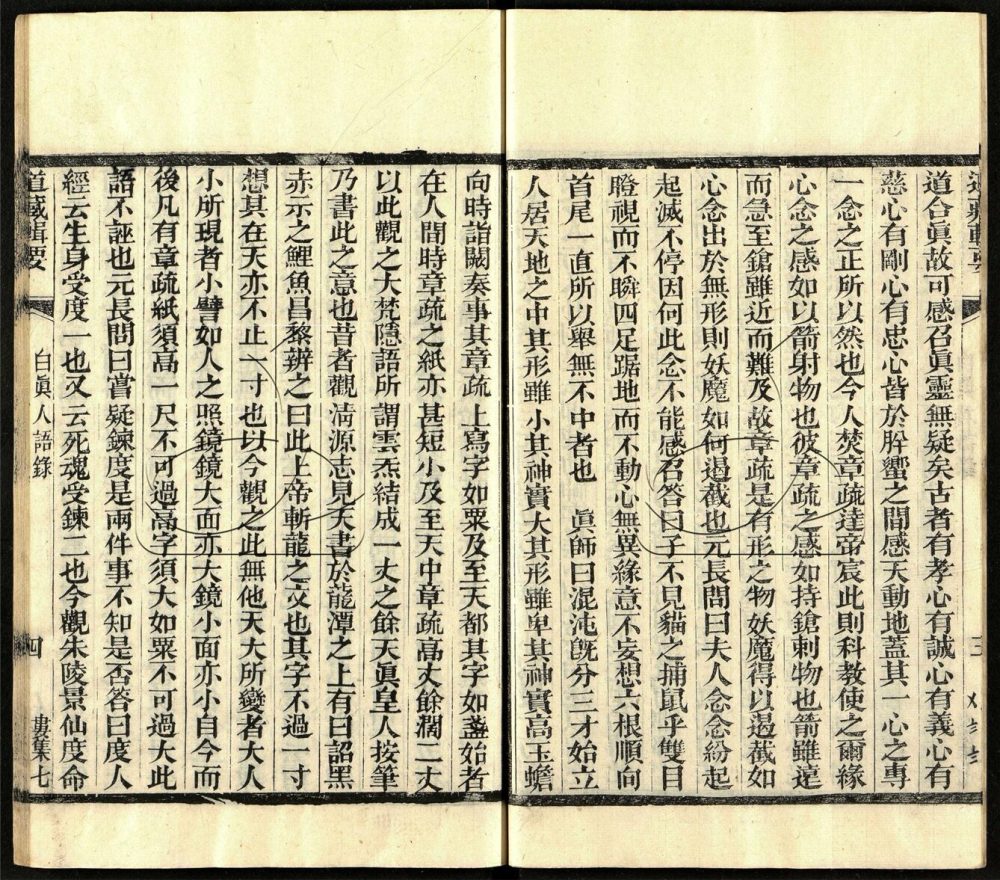 道合眞故可感召眞靈無疑矣古者有孝心有誠心有義心有
慈心有剛心有忠心皆於肸蠁之間感天動地蓋其一心之專
一念之正所以然也今人焚章疏達帝宸此則科教使之爾緣
心念之感如以箭射物也彼章疏之感如持鎗刺物也箭雖遠
而急至鎗雖近而難及故章疏是有形之物妖魔得以遏截如
心念出於無形則妖魔如何遏截也元長問曰夫人念念紛起
起滅不停因何此念不能感召答曰子不見貓之捕鼠乎雙目
瞪視而不瞬四足踞地而不動心無異緣意不妄想六根順向
首尾一直所以舉無不中者也　眞師曰混沌旣分三才始立
人居天地之中其形雖小其神實大其形雖卑其神實高玉蟾
向時詣闕奏事其章疏上寫字如粟及至天都其字如盞始者
在人間時章疏之紙亦甚短小及至天中章疏高丈餘濶二丈
以此觀之大梵隱語所謂雲炁結成一丈之餘天眞皇人按筆
乃書此之意也昔者觀淸源志見天書於龍潭之上有曰詔黑
赤示之鯉魚昌黎辨之曰此上帝斬龍之文也其字不過一寸
想其在天亦不止一寸也以今觀之此無他天大所變者大人
小所現者小譬如人之照鏡鏡大面亦大鏡小面亦小自今而
後凡有章疏紙須高一尺不可過高字須大如粟不可過大此
語不誣也元長問曰嘗疑鍊度是兩件事不知是否答曰度人
經云生身受度一也又云死魂受鍊二也今觀朱陵景仙度命
道藏輯要　白眞人語錄　四　婁集七